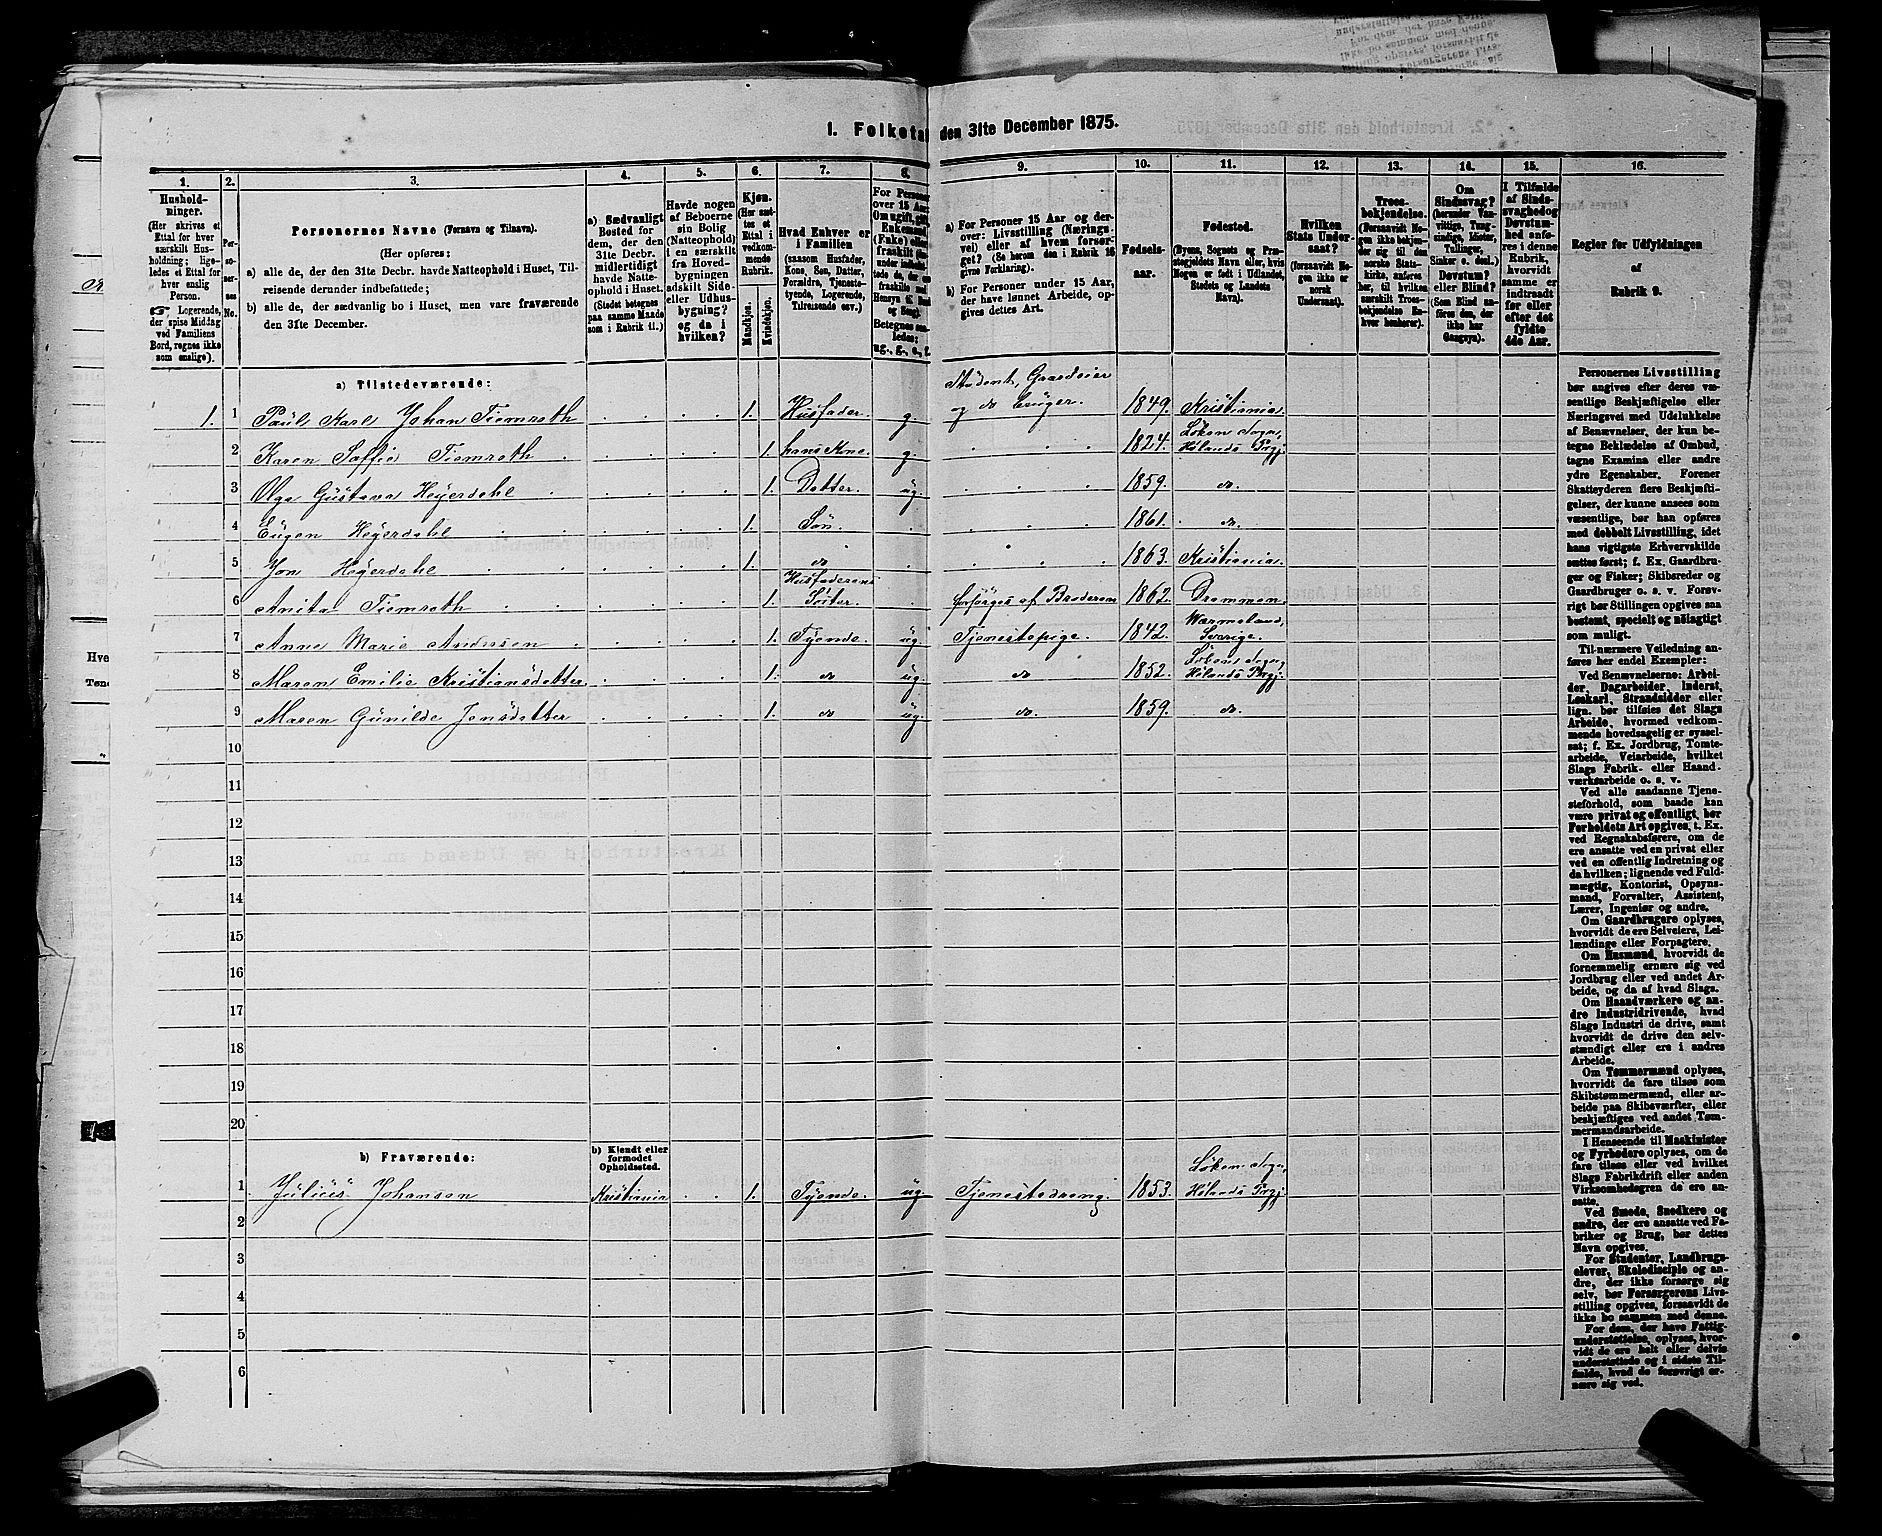 I. Folketæ den 31te December 1875.
1. 2. 3. 4. 5. 6. 7. 8. 9. 10. 11. 12. 13. 14. 15. 16.
Hushold-
ninger.
(Her skrives et
Ettal for hver
særskilt Hus-
holdning; lige-
ledes et Ettal for
hver enslig
Person.
☞ Logerende,
der spise Middag
ved Familiens
Bord, regnes ikke
som enslige).
Per-
so-
ner-
nes
No.
Personernes Navne (Fornavn og Tilnavn).
(Her opføres:
a) alle de, der den 31te Decbr. havde Natteophold i Huset, Til-
reisende derunder indbefattede;
b) alle de, der sædvanlig bo i Huset, men vare fraværende
den 31te December.
a) Sædvanligt
Bosted for
dem, der den
31te Decbr.
midlertidigt
havde Natte-
ophold i Huset.
(Stedet betegnes
paa samme Maade
som i Rubrik 11.)
Havde nogen
af Beboerne
sin Bolig
(Natteophold)
i en særskilt
fra Hoved-
bygningen
adskilt Side-
eller Udhus-
bygning?
og da i
hvilken?
Kjøn.
(Her sæt-
tes et
Ettal i
vedkom-
mende
Rubrik.
Mandkjøn.
Kvindekjøn.
Hvad Enhver er
i Familien
(saasom Husfader,
Kone, Søn, Datter,
Forældre, Tjeneste-
tyende, Logerende,
Tilreisende osv.)
For Personer
over 15 Aar:
Om ugift, gift,
Enkemand
(Enke) eller
fraskilt
Betegnes saa-
ledes:
ug., g., e., f.
a) For Personer 15 Aar og der-
over: Livsstilling (Nærings-
vei) eller af hvem forsør-
get? (Se herom den i Rubrik 16
givne Forklaring).
b) For Personer under 15 Aar,
der have lønnet Arbeide, op-
gives dettes Art.
Fødsels-
aar.
Fødested.
(Byens, Sognets og Præ-
stegjeldets Navn eller, hvis
Nogen er født i Udlandet,
Stedets og Landets
Navn).
Hvilken
Stats Under-
saat?
(forsaavidt No-
gen ikke er
norsk
Undersaat).
Troes-
bekjendelse.
(Forsaavidt No-
gen ikke bekjen-
der sig til den
norske Stats-
kirke, anføres
her, til hvilken
særskilt Troes-
bekjendelse En-
hver henhører).
Om
Sindssvag?
(herunder Van-
vittige, Tung-
sindige, Idioter,
Tullinger,
Sinker o. desl.)
Døvstum?
eller Blind?
(Som Blind an-
føres den, der
ikke har
Gangsyn).
I Tilfælde
af Sinds-
svaghed og
Døvstum-
hed anfø-
res i denne
Rubrik,
hvorvidt
samme er
indtraadt
før eller
efter det
fyldte
4de Aar.
Regler for Udfyldningen
af
Rubrik 9.
a) Tilstedeværende:
1. 1 Paul Karl Johan Tiemroth 1. Husfader. g. Student, Gaardeier og do bruger. 1849. Kristiania.
2 Karen Soffie Tiemroth 1. hans Kone. g. 1824. Løken Sogn, Hølands Prgj.
3 Olga Gustava Heyerdahl 1. Datter. ug. 1859. do.
4 Eugen Heyerdahl 1. Søn. 1861. do.
5 Jon Heyerdahl 1. do 1863. Kristiania.
6 Anita Tiemroth 1. Husfaderens Søster. forsørges af Broderen 1862. Drammen.
7 Anne Marie Andersen 1. Tyende. ug. Tjenestepige. 1842. Wærmeland, Sverige.
8 Maren Emilie Kristiansdatter 1. do ug. do 1852. Løken Sogn, Hølands Prgj.
9 Maren Gunilde Jensdatter 1. do ug. do. 1859. do.
10
11
12
13
14
15
16
17
18
19
20
b) Fraværende:
b) Kjendt eller
formodet
Opholdssted.
1 Julius Johansen Kristiania 1. Tyende. ug. Tjenestedreng. 1853. Løken Sogn, Hølands Prgj.
2
3
4
5
6
Personernes Livsstilling
bør angives efter deres væ-
sentlige Beskjæftigelse eller
Næringsvei med Udelukkelse
af Benævnelser, der kun be-
tegne Beklædelse af Ombud,
tagne Examina eller andre
ydre Egenskaber. Forener
Skatteyderen flere Beskjæfti-
gelser, der kunne ansees som
væsentlige, bør han opføres
med dobbelt Livsstilling, idet
hans vigtigste Erhvervskilde
sættes først; f. Ex. Gaardbru-
ger og Fisker; Skibsreder og
Gaardbruger o. s. v. Forøv-
rigt bør Stillingen opgives saa
bestemt, specielt og nøiagtigt
som muligt.
Til nærmere Veiledning an-
føres her endel Exempler:
Ved Benævnelserne: Arbei-
der, Dagarbeider, Inderst,
Løskarl, Strandsidder eller
lign. bør tilføies det Slags
Arbeide, hvormed vedkom-
mende hovedsagelig er syssel-
sat; f. Ex. Jordbrug, Tomte-
arbeide, Veiarbeide, hvilket
Slags Fabrik- eller Haand-
værksarbeide o. s. v.
Ved alle saadanne Tjene-
steforhold, som baade kan
være privat og offentligt, bør
Forholdets Art opgives, t. Ex.
ved Regnskabsførere, om de
ere ansatte ved en privat eller
ved en offentlig Indretning og
da hvilken; lignende ved Fuld-
mægtig, Kontorist, Opsyns-
mand, Forvalter, Assistent,
Lærer, Ingeniør og andre.
Om Gaardbrugere oplyses,
hvorvidt de ere Selveiere, Lei-
lændinge eller Forpagtere.
Om Husmænd, hvorvidt de
fornemmelig ernære sig ved
Jordbrug eller ved andet Ar-
beide, og da af hvad Slags.
Om Haandværkere og an-
dre Industridrivende, hvad
Slags Industri de drive, samt
hvorvidt de drive den selv-
stændigt eller ere i andres
Arbeide.
Om Tømmermænd oplyses,
hvorvidt de fare tilsøs som
Skibstømmermænd, eller ar-
beide paa Skibsværfter, eller
beskjæftiges ved andet Tøm-
mermandsarbeide.
I Henseende til Maskinister
og Fyrbødere oplyses, om de
fare tilsøs eller ved hvilket
Slags Fabrikdrift eller anden
Virksomhedsgren de ere an-
satte.
Ved Smede, Snedkere og
andre, der ere ansatte ved Fa-
briker og Brug, bør dettes
Navn opgives.
For Studenter, Landbrugs-
elever, Skoledisciple og an-
dre, der ikke forsørge sig
selv, bør Forsørgerens Livs-
stilling opgives, forsaavidt de
ikke bo sammen med denne.
For dem, der have Fattig-
understøttelse, oplyses, hvor-
vidt de ere helt eller delvis
understøttede og i sidste Til-
fælde, hvad de forøvrigt er-
nære sig ved.